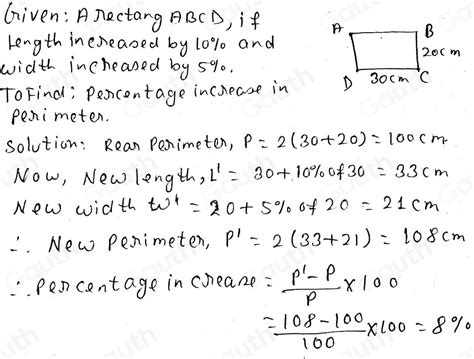 Given: A rectang ABCD, if
length increased by 10% and
width increased by 5%.
To Find: Percentage increase in
perimeter.
A B
20cm
D 30cm C
Solution: Rear Perimeter, P = 2(30+20) = 100cm
Now, New length, L' = 30+10% of 30 = 33cm
New width W' = 20+5% of 20 = 21cm
∴ New Perimeter, P' = 2(33+21) = 108cm
∴ Percentage increase = P'-P/P × 100
= 108-100/100 × 100 = 8%